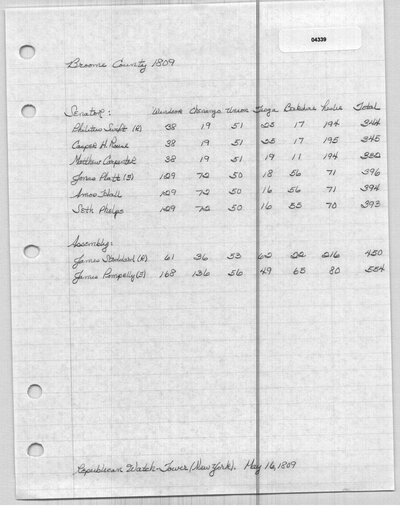 04339
Broome County 1809
Senators: Windsor Chenango Union Tioga Berkshire Lisle Total
Philetus Swift (R) 38 19 51 25 17 194 344
Casper H. Rouse 38 19 51 25 17 195 345
Matthew Carpenter 38 19 51 19 11 194 332
Jonas Platt (F) 129 72 50 18 56 71 396
Amos Hall 129 72 50 16 56 71 394
Seth Phelps 129 72 50 16 55 70 393
Assembly:
James Stoddard (R) 61 36 53 62 22 216 450
James Pompelly (F) 168 136 56 49 65 80 554
Republican Watch-Tower (New York). May 16, 1809